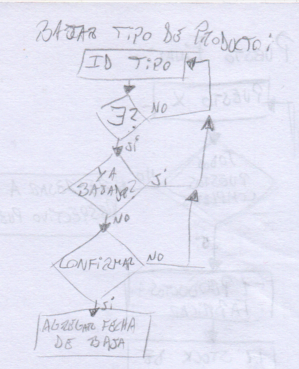 BAJAR TIPO DE PRODUCTO:
ID TIPO
∃?
NO
SI
YA
BAJADO?
SI
NO
CONFIRMAR
NO
SI
AGREGAR FECHA
DE BAJA